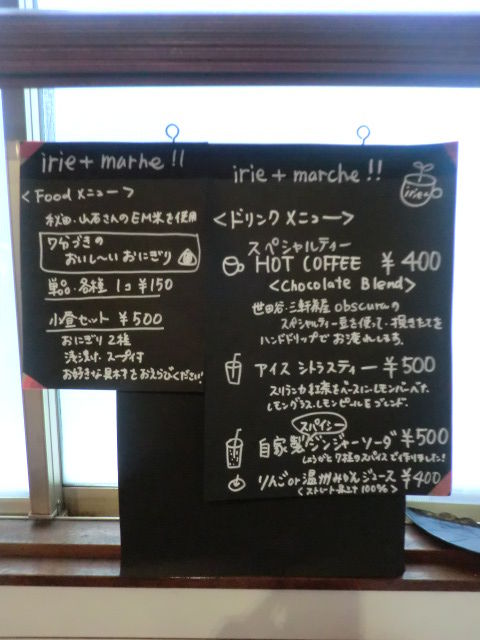 irie + marhe !!
<Food メニュー>
秋田・山石さんのEM米を使用
7分づきの
おいし〜いおにぎり
単品・各種 1コ ¥150
小昼セット ¥500
おにぎり2種
浅漬け・スープ付
お好きな具材をおえらびください
irie + marche !!
irie
<ドリンクメニュー>
スペシャルティー
HOT COFFEE ¥400
<Chocolate Blend>
世田谷・三軒茶屋 obscuraの
スペシャルティー豆を使って・挽きたてを
ハンドドリップでお淹れします。
アイス シトラスティー ¥500
スリランカ紅茶をベースにレモンバーベナ、
レモングラス、レモンピールをブレンド。
スパイシー
自家製ジンジャーソーダ ¥500
しょうがと7種のスパイスで作りました!
りんごor温州みかんジュース ¥400
<ストレート果汁100%>